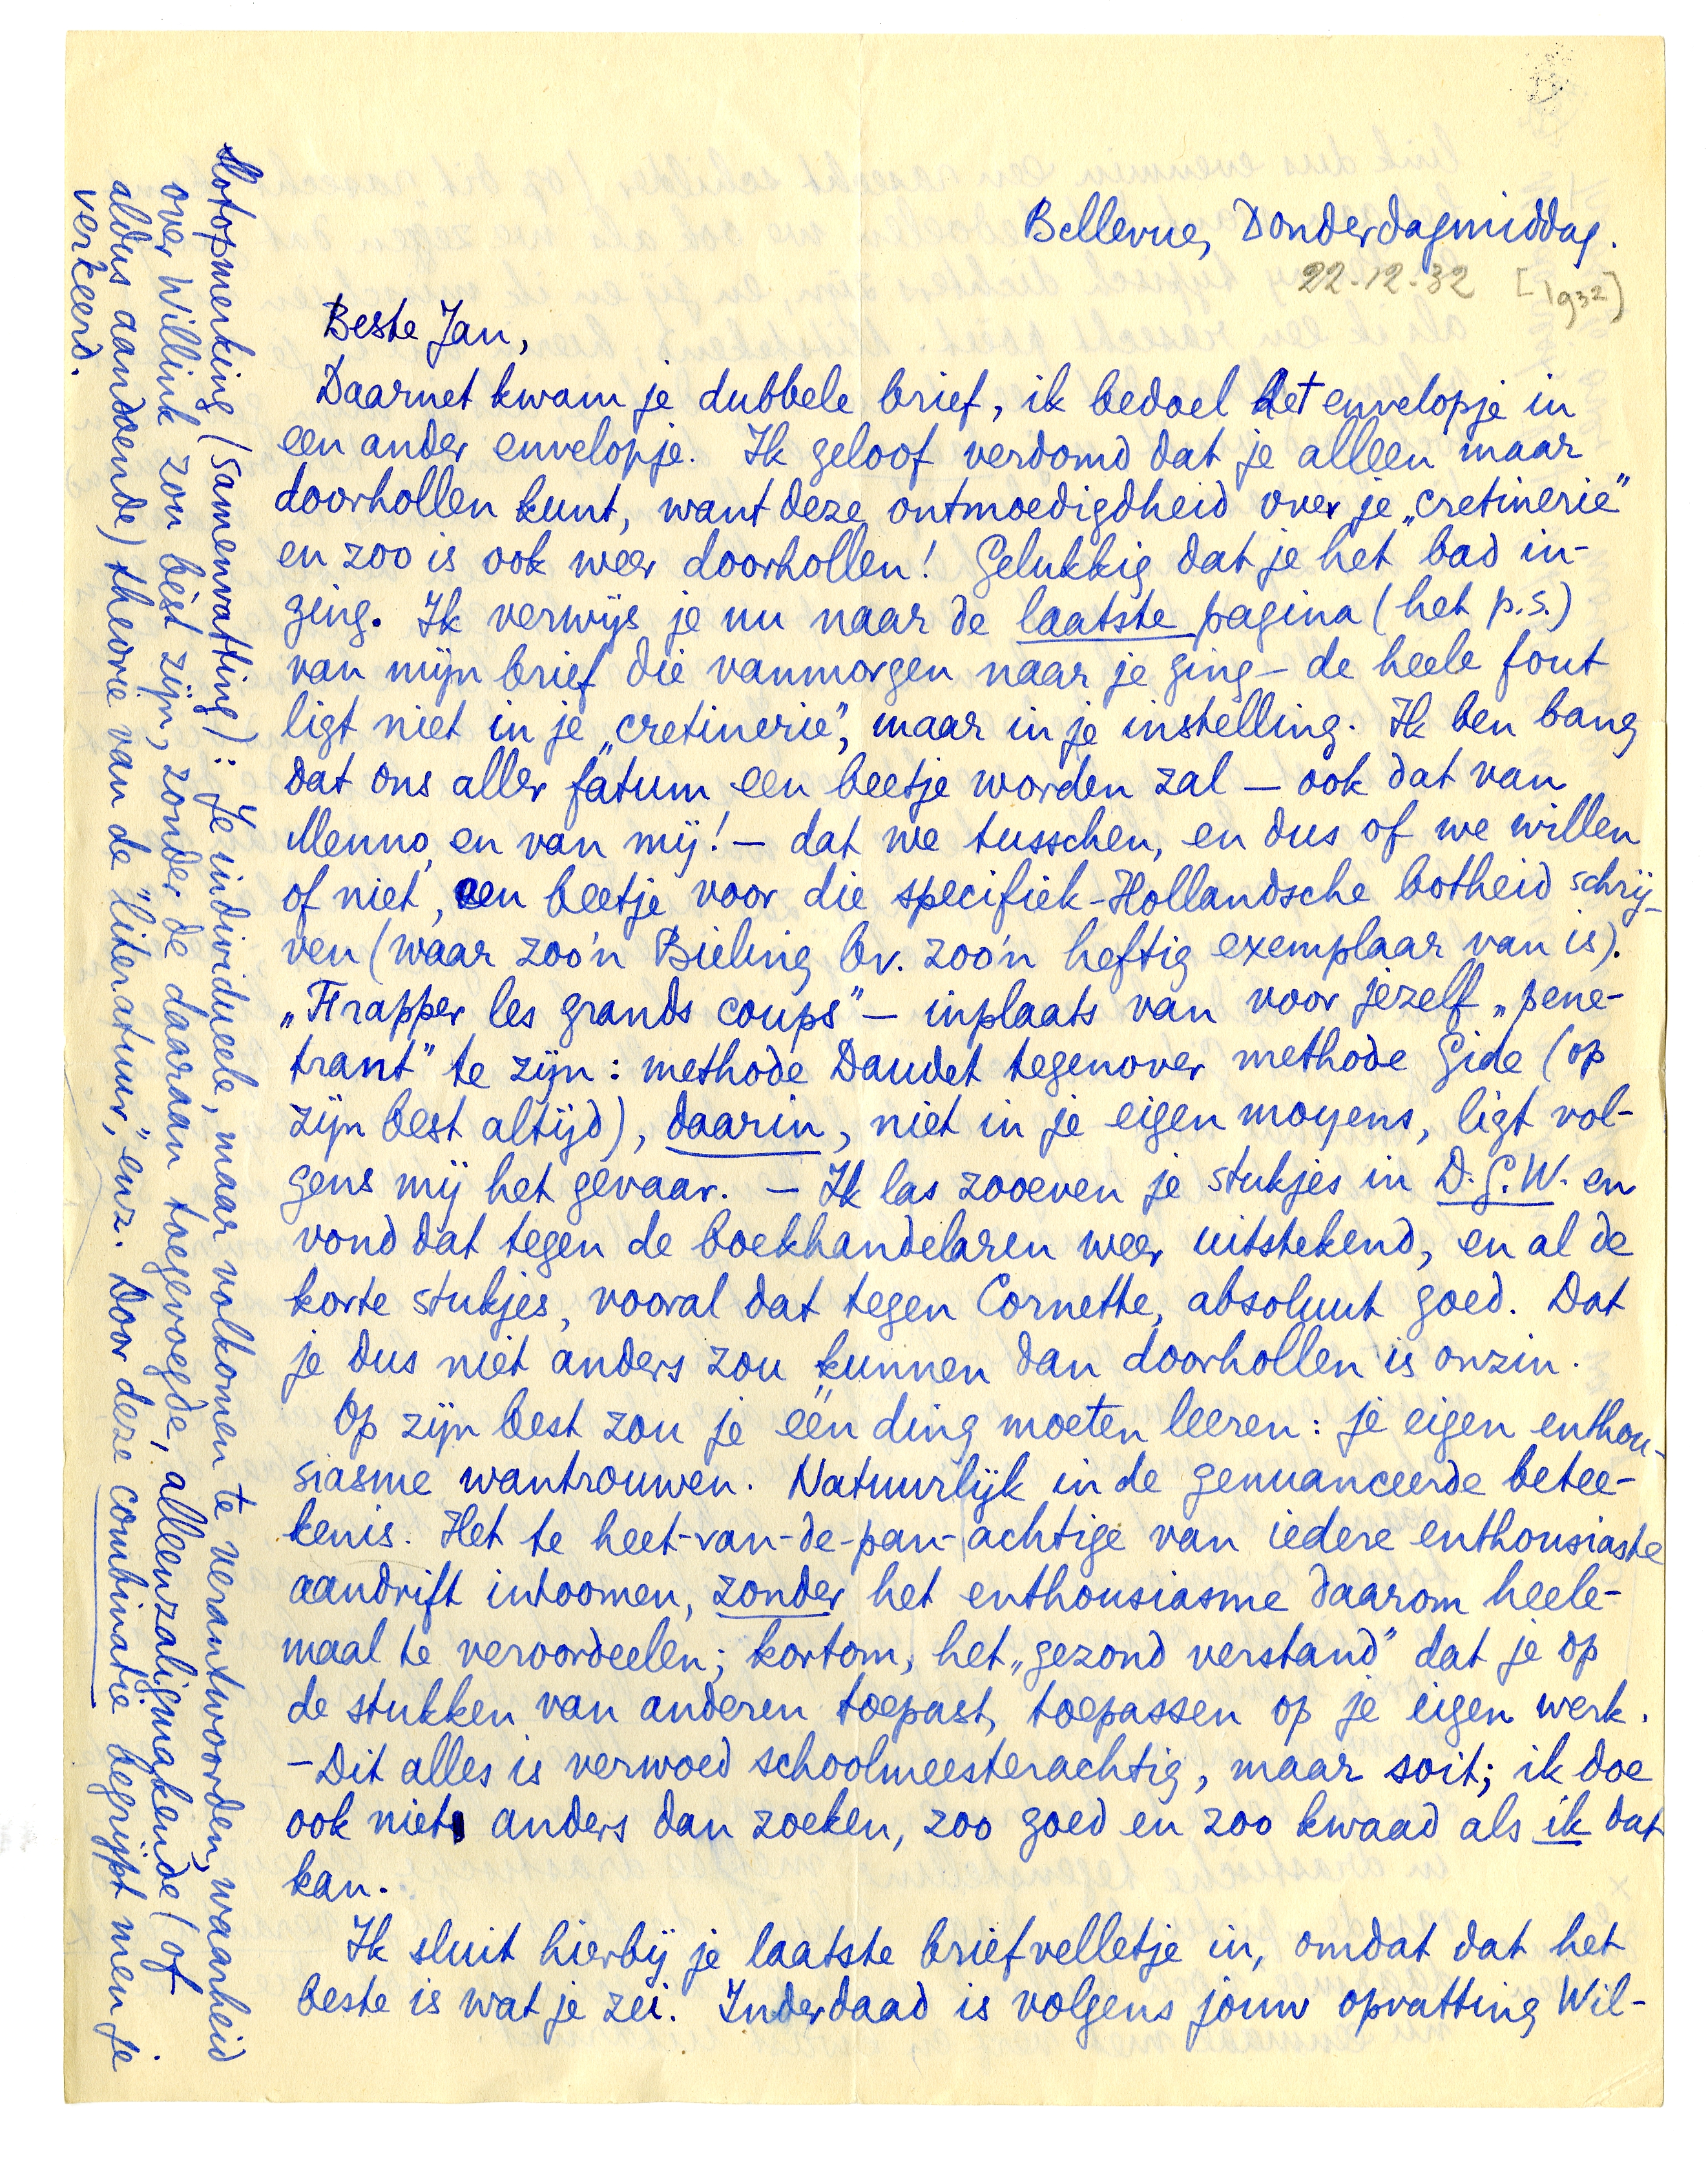 Bellevue, Donderdagmiddag.
22-12-32 [1932]
Beste Jan,
Daarnet kwam je dubbele brief, ik bedoel het envelopje in
een ander envelopje. Ik geloof verdomd dat je alleen maar
doorhollen kunt, want deze ontmoedigdheid over je „cretinerie”
en zoo is ook weer doorhollen! Gelukkig dat je het bad in-
ging. Ik verwijs je nu naar de laatste pagina (het p.s.)
van mijn brief die vanmorgen naar je ging – de heele fout
ligt niet in je „cretinerie”, maar in je instelling. Ik ben bang
dat ons aller fatum een beetje worden zal – ook dat van
Menno, en van mij! – dat we tusschen, en dus of we willen
of niet, een beetje voor die specifiek-Hollandsche botheid schrij-
ven (waar zoo'n Bieling bv. zoo'n heftig exemplaar van is).
„Frapper les grands coups” – inplaats van voor jezelf „pene-
trant” te zijn: methode Daudet tegenover methode Gide (op
zijn best altijd), daarin, niet in je eigen moyens, ligt vol-
gens mij het gevaar. – Ik las zooeven je stukjes in D.G.W. en
vond dat tegen de boekhandelaren weer uitstekend, en al de
korte stukjes, vooral dat tegen Cornette, absoluut goed. Dat
je dus niet anders zou kunnen dan doorhollen is onzin.
Op zijn best zou je één ding moeten leeren: je eigen enthou-
siasme wantrouwen. Natuurlijk in de genuanceerde betee-
kenis. Het te heet-van-de-pan-achtige van iedere enthousiaste
aandrift intoomen, zonder het enthousiasme daarom heele-
maal te veroordeelen; kortom, het „gezond verstand” dat je op
de stukken van anderen toepast, toepassen op je eigen werk.
– Dit alles is verwoed schoolmeesterachtig, maar soit; ik doe
ook niet anders dan zoeken, zoo goed en zoo kwaad als ik dat
kan.
Ik sluit hierbij je laatste briefvelletje in, omdat dat het
beste is wat je zei. Inderdaad is volgens jouw opvatting Wil-
Slotopmerking (samenvatting): Je individueele, maar volkomen te verantwoorden, waarheid
over Willink zou bèst zijn, zonder de daaraan toegevoegde, allenzaligmakende (of
aldus aandoende) theorie van de „literatuur,” enz. Door deze combinatie begrijpt men je
verkeerd.